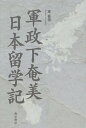 軍政下奄美
日本留学記